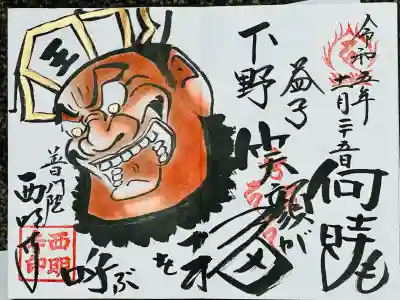 令和五年
十一月二十五日
何時も
笑顔が
福
を
呼ぶ
下野
益子
王
普門院
西明寺
西明寺印